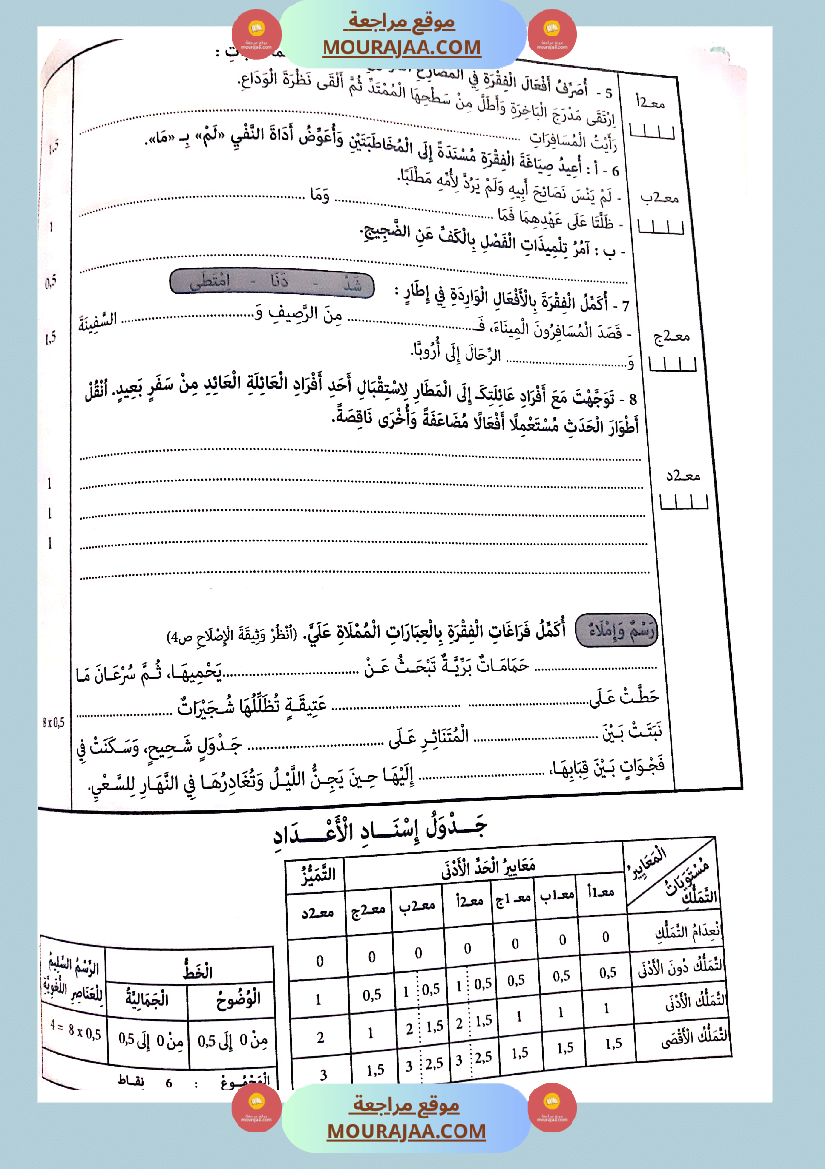 موقع مراجعة
MOURAJAA.COM
5 - أُصَرِّفُ أَفْعَالَ الْفِقْرَةِ فِي الْمُضَارِعِ
معـ2أ
اِرْتَقَى مَدْرَجَ الْبَاخِرَةِ وَأَطَلَّ مِنْ سَطْحِهَا الْمُمْتَدِّ ثُمَّ أَلْقَى نَظْرَةَ الْوَدَاعِ.
رَأَيْتُ الْمُسَافِرَاتِ
1,5
6 - أ : أُعِيدُ صِيَاغَةَ الْفِقْرَةِ مُسْنَدَةً إِلَى الْمُخَاطَبَتَيْنِ وَأُعَوِّضُ أَدَاةَ النَّفْيِ «لَمْ» بِـ «مَا».
معـ2ب
- لَمْ يَنْسَ نَصَائِحَ أَبِيهِ وَلَمْ يَرُدَّ لِأُمِّهِ مَطْلَبًا.
- ظَلْتَا عَلَى عَهْدِهِمَا فَمَا ........ وَمَا ........
1
- ب : آمُرُ تِلْمِيذَاتِ الْفَصْلِ بِالْكَفِّ عَنِ الضَّجِيجِ.
0,5
7 - أُكَمِّلُ الْفِقْرَةَ بِالْأَفْعَالِ الْوَارِدَةِ فِي إِطَارٍ : شَدَّ - دَنَا - اِمْتَطَى
- قَصَدَ الْمُسَافِرُونَ الْمِينَاءَ، فَـ........ مِنَ الرَّصِيفِ وَ........ السَّفِينَةَ
معـ2ج
1,5
وَ........ الرِّحَالَ إِلَى أُرُوبَّا.
8 - تَوَجَّهْتَ مَعَ أَفْرَادِ عَائِلَتِكَ إِلَى الْمَطَارِ لِاسْتِقْبَالِ أَحَدِ أَفْرَادِ الْعَائِلَةِ الْعَائِدِ مِنْ سَفَرٍ بَعِيدٍ. اُنْقُلْ
أَطْوَارَ الْحَدَثِ مُسْتَعْمِلًا أَفْعَالًا مُضَاعَفَةً وَأُخْرَى نَاقِصَةً.
معـ2د
1
1
1
رَسْمٌ وَإِمْلَاءٌ أُكَمِّلُ فَرَاغَاتِ الْفِقْرَةِ بِالْعِبَارَاتِ الْمُمْلَاةِ عَلَيَّ. (اُنْظُرْ وَثِيقَةَ الْإِصْلَاحِ ص4)
........ حَمَامَاتٌ بَرِّيَّةٌ تَبْحَثُ عَنْ ........ يَحْمِيهَا، ثُمَّ سُرْعَانَ مَا
حَطَّتْ عَلَى ........ عَتِيقَةٍ تُظَلِّلُهَا شُجَيْرَاتٌ ........
8 x 0,5
نَبَتَتْ بَيْنَ ........ الْمُتَنَاثِرِ عَلَى ........ جَدْوَلٍ شَحِيحٍ، وَسَكَنَتْ فِي
فَجْوَاتٍ بَيْنَ قِبَابِهَا، ........ إِلَيْهَا حِينَ يَجِنُّ اللَّيْلُ وَتُغَادِرُهَا فِي النَّهَارِ لِلسَّعْيِ.
جَدْوَلُ إِسْنَادِ الْأَعْدَادِ
الْمَعَايِيرُ مَعَايِيرُ الْحَدِّ الْأَدْنَى التَّمَيُّزُ
مُسْتَوَيَاتُ التَّمَلُّكِ معـ1أ معـ1ب معـ1ج معـ2أ معـ2ب معـ2ج معـ2د
اِنْعِدَامُ التَّمَلُّكِ 0 0 0 0 0 0 0
التَّمَلُّكُ دُونَ الْأَدْنَى 0,5 0,5 0,5 0,5 1 0,5 1 0,5 1
التَّمَلُّكُ الْأَدْنَى 1 1 1 1,5 2 1,5 2 1 2
التَّمَلُّكُ الْأَقْصَى 1,5 1,5 1,5 2,5 3 2,5 3 1,5 3
الْخَطُّ الرَّسْمُ السَّلِيمُ لِلْعَنَاصِرِ اللُّغَوِيَّةِ
الْوُضُوحُ الْجَمَالِيَّةُ
مِنْ 0 إِلَى 0,5 مِنْ 0 إِلَى 0,5 4 = 8 x 0,5
الْمَجْمُوعُ : 6 نِقَاط
موقع مراجعة
MOURAJAA.COM